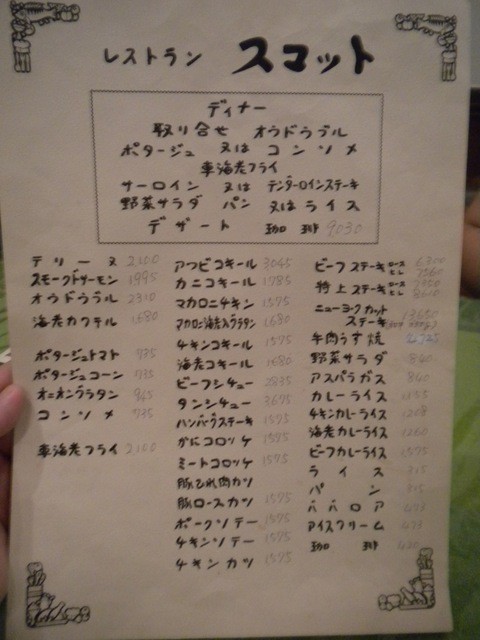 レストラン スコット
ディナー
取り合せ オウドウブル
ポタージュ 又は コンソメ
車海老フライ
サーロイン 又は テンダーロインステーキ
野菜サラダ パン 又はライス
デザート 珈琲 9030
テリーヌ 2100
スモークドサーモン 1995
オウドウブル 2310
海老カクテル 1680
ポタージュトマト 735
ポタージュコーン 735
オニオングラタン 945
コンソメ 735
車海老フライ 2100
アワビコキール 3045
カニコキール 1785
マカロニチキン 1575
マカロニ海老グラタン 1680
チキンコキール 1575
海老コキール 1680
ビーフシチュー 2835
タンシチュー 3675
ハンバーグステーキ 1575
かにコロッケ 1575
ミートコロッケ 1575
豚ひれ肉カツ
豚ロースカツ 1575
ポークソテー 1575
チキンソテー 1575
チキンカツ 1575
ビーフステーキ ロース 6300
ヒレ
特上ステーキ ロース
ヒレ
ニューヨークカット
ステーキ 13650
牛肉うす焼
野菜サラダ 840
アスパラガス 840
カレーライス 1155
チキンカレーライス 1208
海老カレーライス 1260
ビーフカレーライス 1575
ライス 315
パン 315
ババロア 473
アイスクリーム 473
珈琲 420